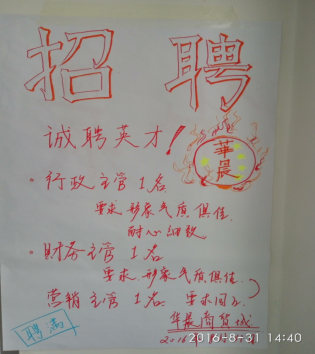 招聘
诚聘英才!
華晨
·行政主管1名
要求 形象气质俱佳.
耐心细致
·财务主管1名
要求.形象气质俱佳.
营销主管1名 要求同上
聘满
華晨商贸城
2016-8-31 14:40